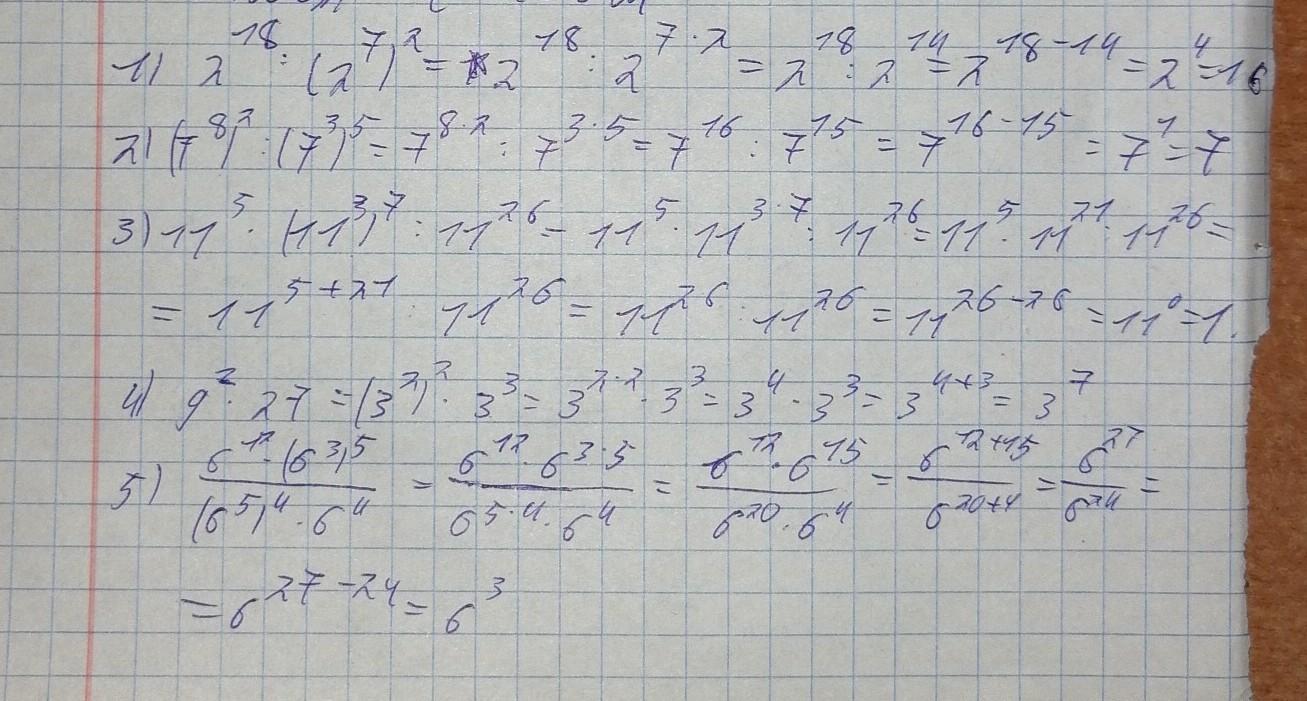 1) 2^18 : (2^7)^2 = 2^18 : 2^(7·2) = 2^18 : 2^14 = 2^(18-14) = 2^4 = 16
2) (7^8)^2 : (7^3)^5 = 7^(8·2) : 7^(3·5) = 7^16 : 7^15 = 7^(16-15) = 7^1 = 7
3) 11^5 · (11^3)^7 : 11^26 = 11^5 · 11^(3·7) : 11^26 = 11^5 · 11^21 : 11^26 =
= 11^(5+21) : 11^26 = 11^26 : 11^26 = 11^(26-26) = 11^0 = 1.
4) 9^2 · 27 = (3^2)^2 · 3^3 = 3^(2·2) · 3^3 = 3^4 · 3^3 = 3^(4+3) = 3^7
5) (6^12 · (6^3)^5) / ((6^5)^4 · 6^4) = (6^12 · 6^(3·5)) / (6^(5·4) · 6^4) = (6^12 · 6^15) / (6^20 · 6^4) = 6^(12+15) / 6^(20+4) = 6^27 / 6^24 =
= 6^(27-24) = 6^3